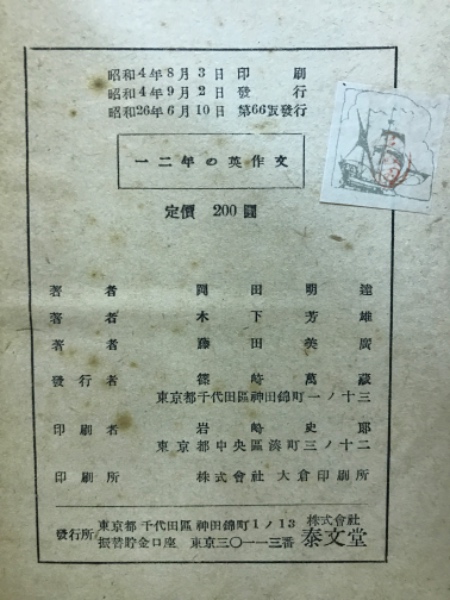 昭和4年8月3日 印刷
昭和4年9月2日 發行
昭和26年6月10日 第66版發行
一二年の英作文
定價 200圓
著者 岡田明達
著者 木下芳雄
著者 藤田美廣
發行者 篠崎萬藏
東京都千代田區神田錦町一ノ十三
印刷者 岩崎史郎
東京都中央區湊町三ノ十二
印刷所 株式會社 大倉印刷所
發行所
東京都千代田區神田錦町1ノ13
振替貯金口座 東京三〇一一三番
株式會社
泰文堂